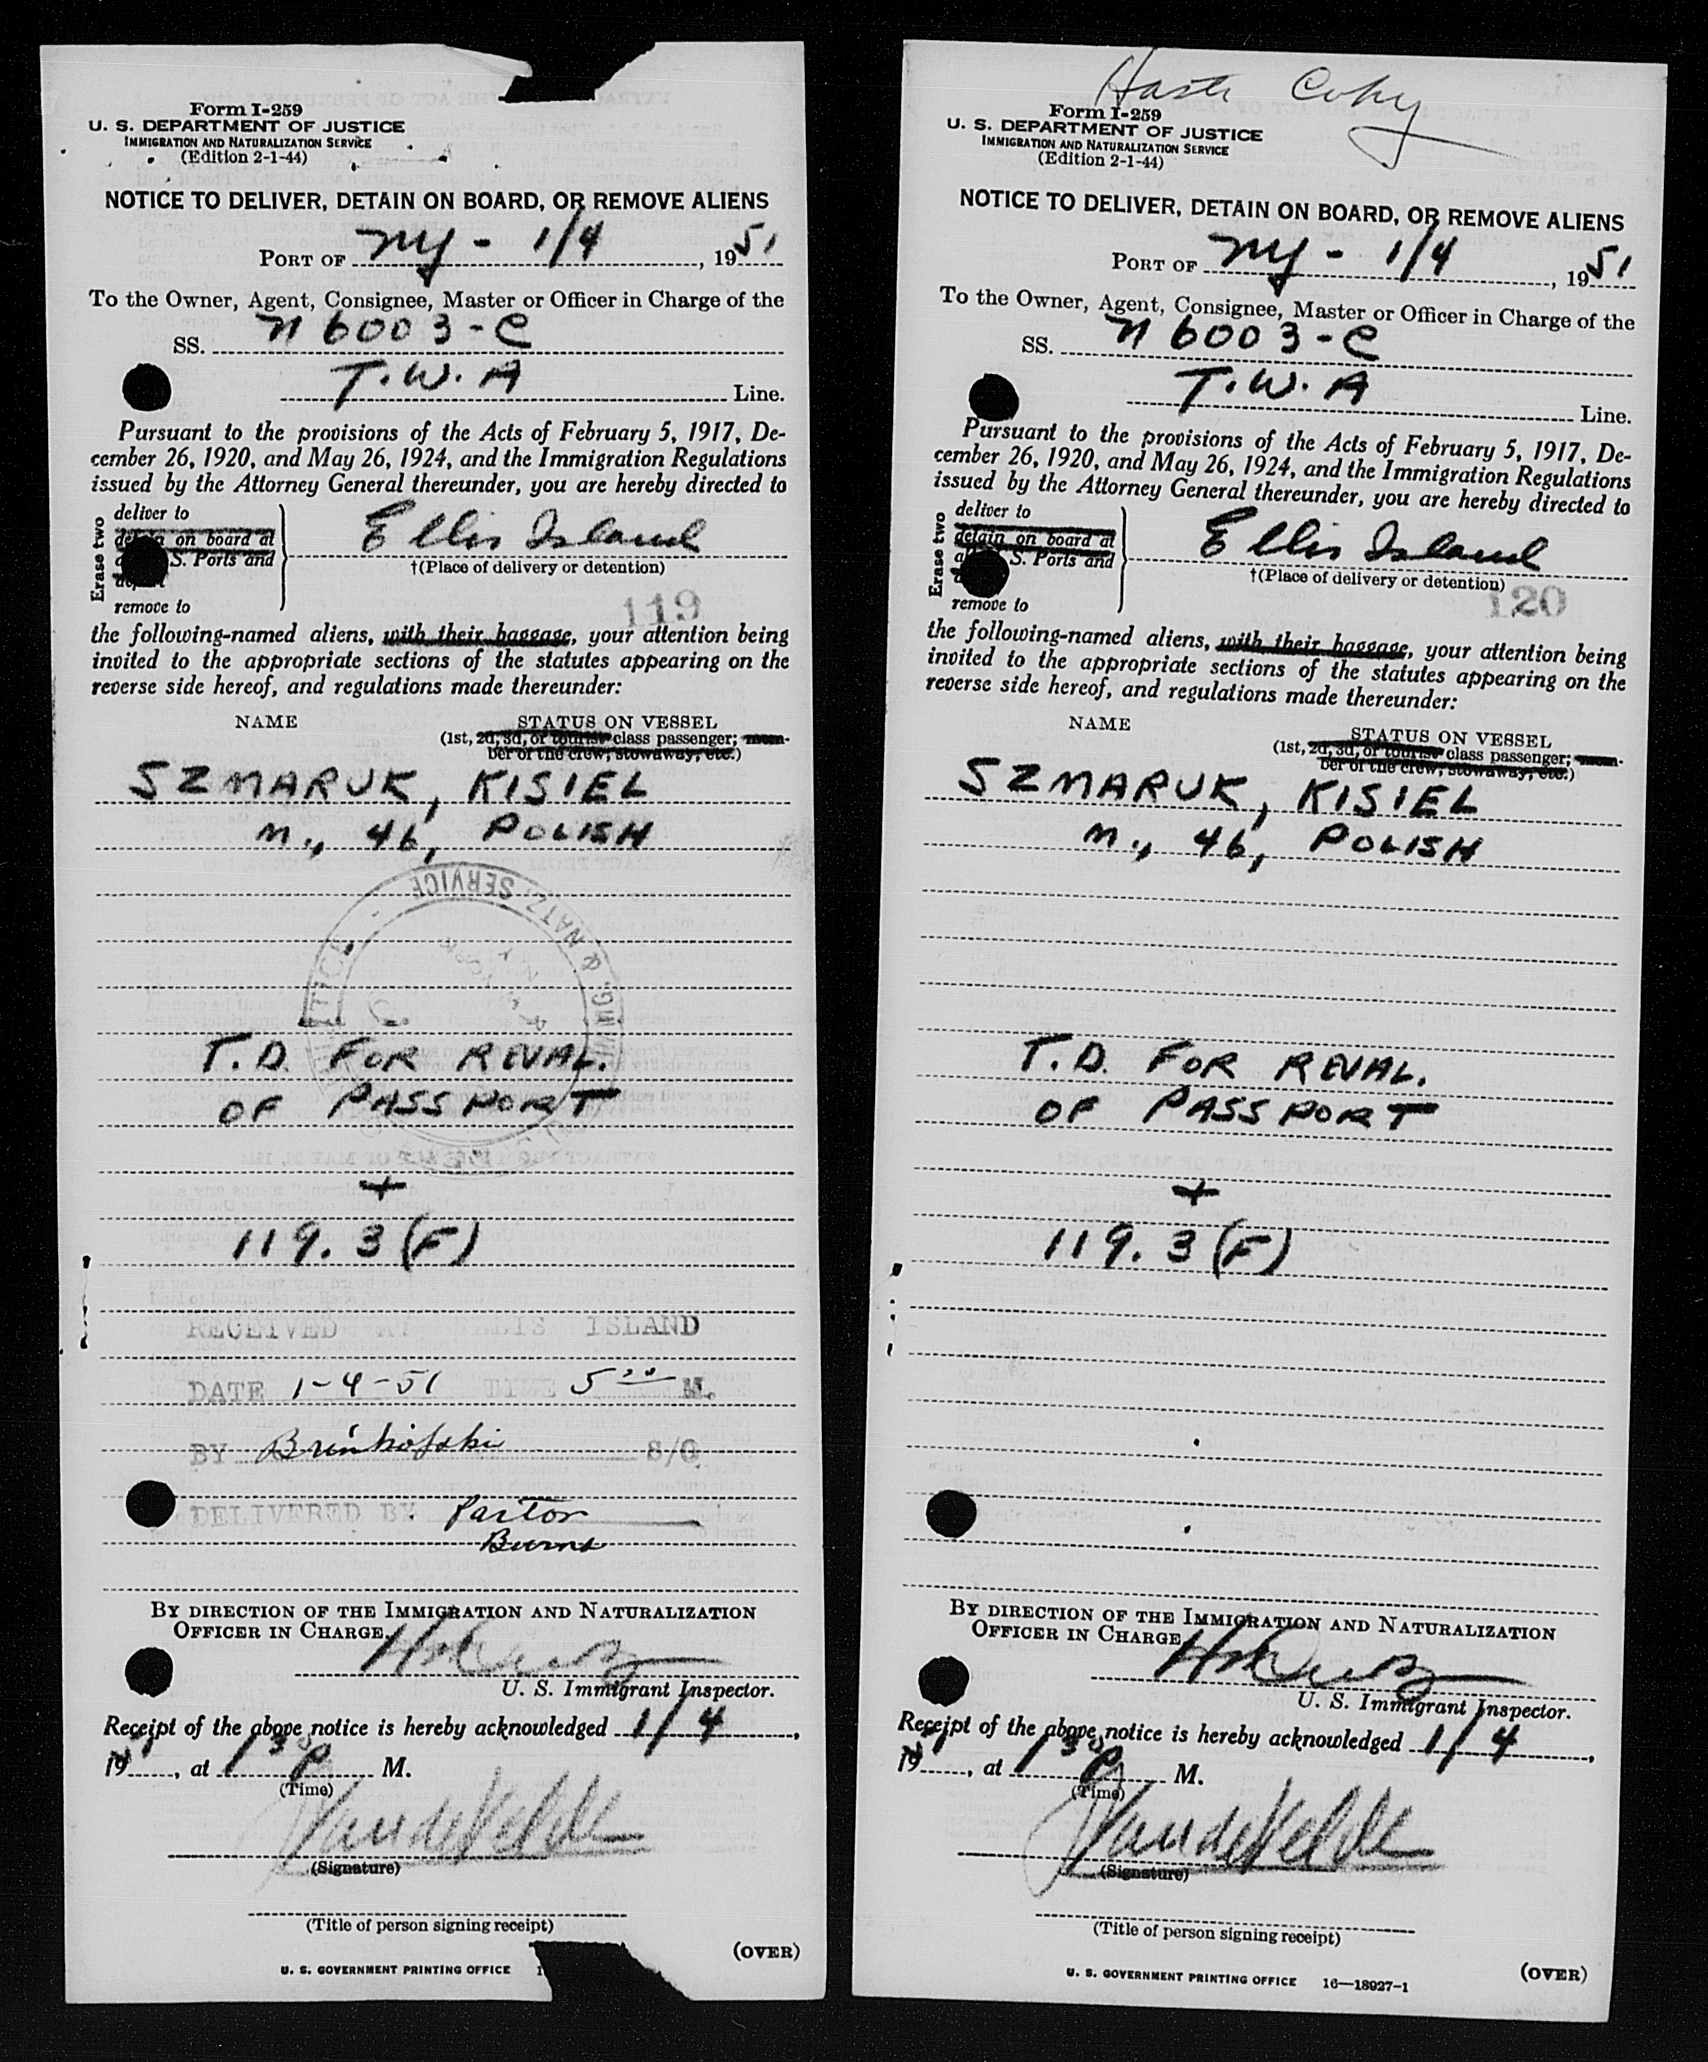 Form I-259
U. S. DEPARTMENT OF JUSTICE
IMMIGRATION AND NATURALIZATION SERVICE
(Edition 2-1-44)
NOTICE TO DELIVER, DETAIN ON BOARD, OR REMOVE ALIENS
PORT OF NY - 1/4, 1951
To the Owner, Agent, Consignee, Master or Officer in Charge of the
SS. N 6003-C
T.W.A Line.
Pursuant to the provisions of the Acts of February 5, 1917, De-
cember 26, 1920, and May 26, 1924, and the Immigration Regulations
issued by the Attorney General thereunder, you are hereby directed to
Erase two
deliver to
on board at
S. Ports and
depart
remove to
Ellis Island
†(Place of delivery or detention)
119
the following-named aliens, with their baggage, your attention being
invited to the appropriate sections of the statutes appearing on the
reverse side hereof, and regulations made thereunder:
NAME STATUS ON VESSEL
(1st, 2d, 3d, or tourist class passenger; mem-
ber of the crew, stowaway, etc.)
SZMARUK, KISIEL
M., 46, POLISH
& NATZ. SERVICE
T.D. FOR REVAL.
OF PASSPORT
+
119.3(F)
RECEIVED AT ELLIS ISLAND
DATE 1-4-51 TIME 5 00 M.
BY Brinkofski S/O
DELIVERED BY Pastor
Burns
BY DIRECTION OF THE IMMIGRATION AND NATURALIZATION
OFFICER IN CHARGE.
U. S. Immigrant Inspector.
Receipt of the above notice is hereby acknowledged 1/4,
1951, at 1 30 P M.
(Time)
VandeVelde
(Signature)
(Title of person signing receipt)
(OVER)
U. S. GOVERNMENT PRINTING OFFICE
Copy
Form I-259
U. S. DEPARTMENT OF JUSTICE
IMMIGRATION AND NATURALIZATION SERVICE
(Edition 2-1-44)
NOTICE TO DELIVER, DETAIN ON BOARD, OR REMOVE ALIENS
PORT OF NY - 1/4, 1951
To the Owner, Agent, Consignee, Master or Officer in Charge of the
SS. N 6003-C
T.W.A Line.
Pursuant to the provisions of the Acts of February 5, 1917, De-
cember 26, 1920, and May 26, 1924, and the Immigration Regulations
issued by the Attorney General thereunder, you are hereby directed to
Erase two
deliver to
detain on board at
S. Ports and
remove to
Ellis Island
†(Place of delivery or detention)
120
the following-named aliens, with their baggage, your attention being
invited to the appropriate sections of the statutes appearing on the
reverse side hereof, and regulations made thereunder:
NAME STATUS ON VESSEL
(1st, 2d, 3d, or tourist class passenger; mem-
ber of the crew, stowaway, etc.)
SZMARUK, KISIEL
M., 46, POLISH
T.D. FOR REVAL.
OF PASSPORT
+
119.3(F)
BY DIRECTION OF THE IMMIGRATION AND NATURALIZATION
OFFICER IN CHARGE
U. S. Immigrant Inspector.
Receipt of the above notice is hereby acknowledged 1/4,
1951, at 1 30 P M.
(Time)
VandeVelde
(Signature)
(Title of person signing receipt)
(OVER)
U. S. GOVERNMENT PRINTING OFFICE 16—18927-1